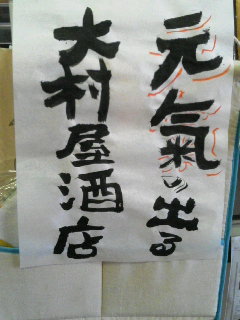 元氣の出る
大村屋酒店